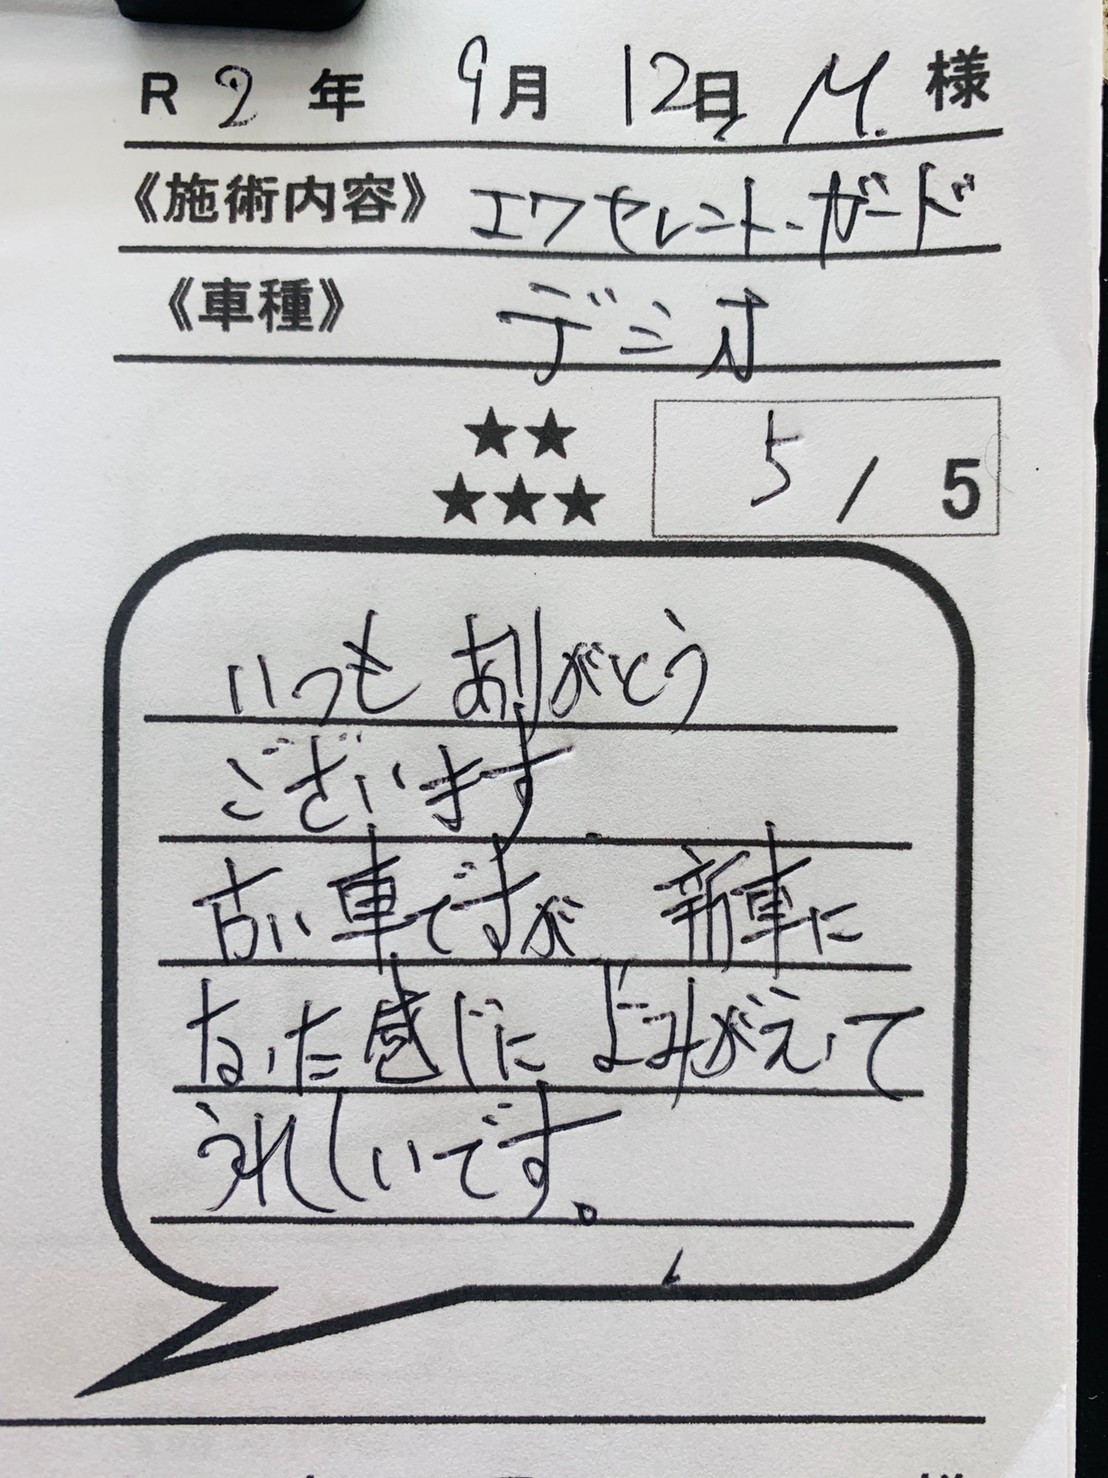 R 2 年 9月 12日 M. 様
《施術内容》 エクセレント・ガード
《車種》 デミオ
★★
★★★ 5 / 5
いつも ありがとう
ございます.
古い車ですが 新車に
なった感じに よみがえって
うれしいです。